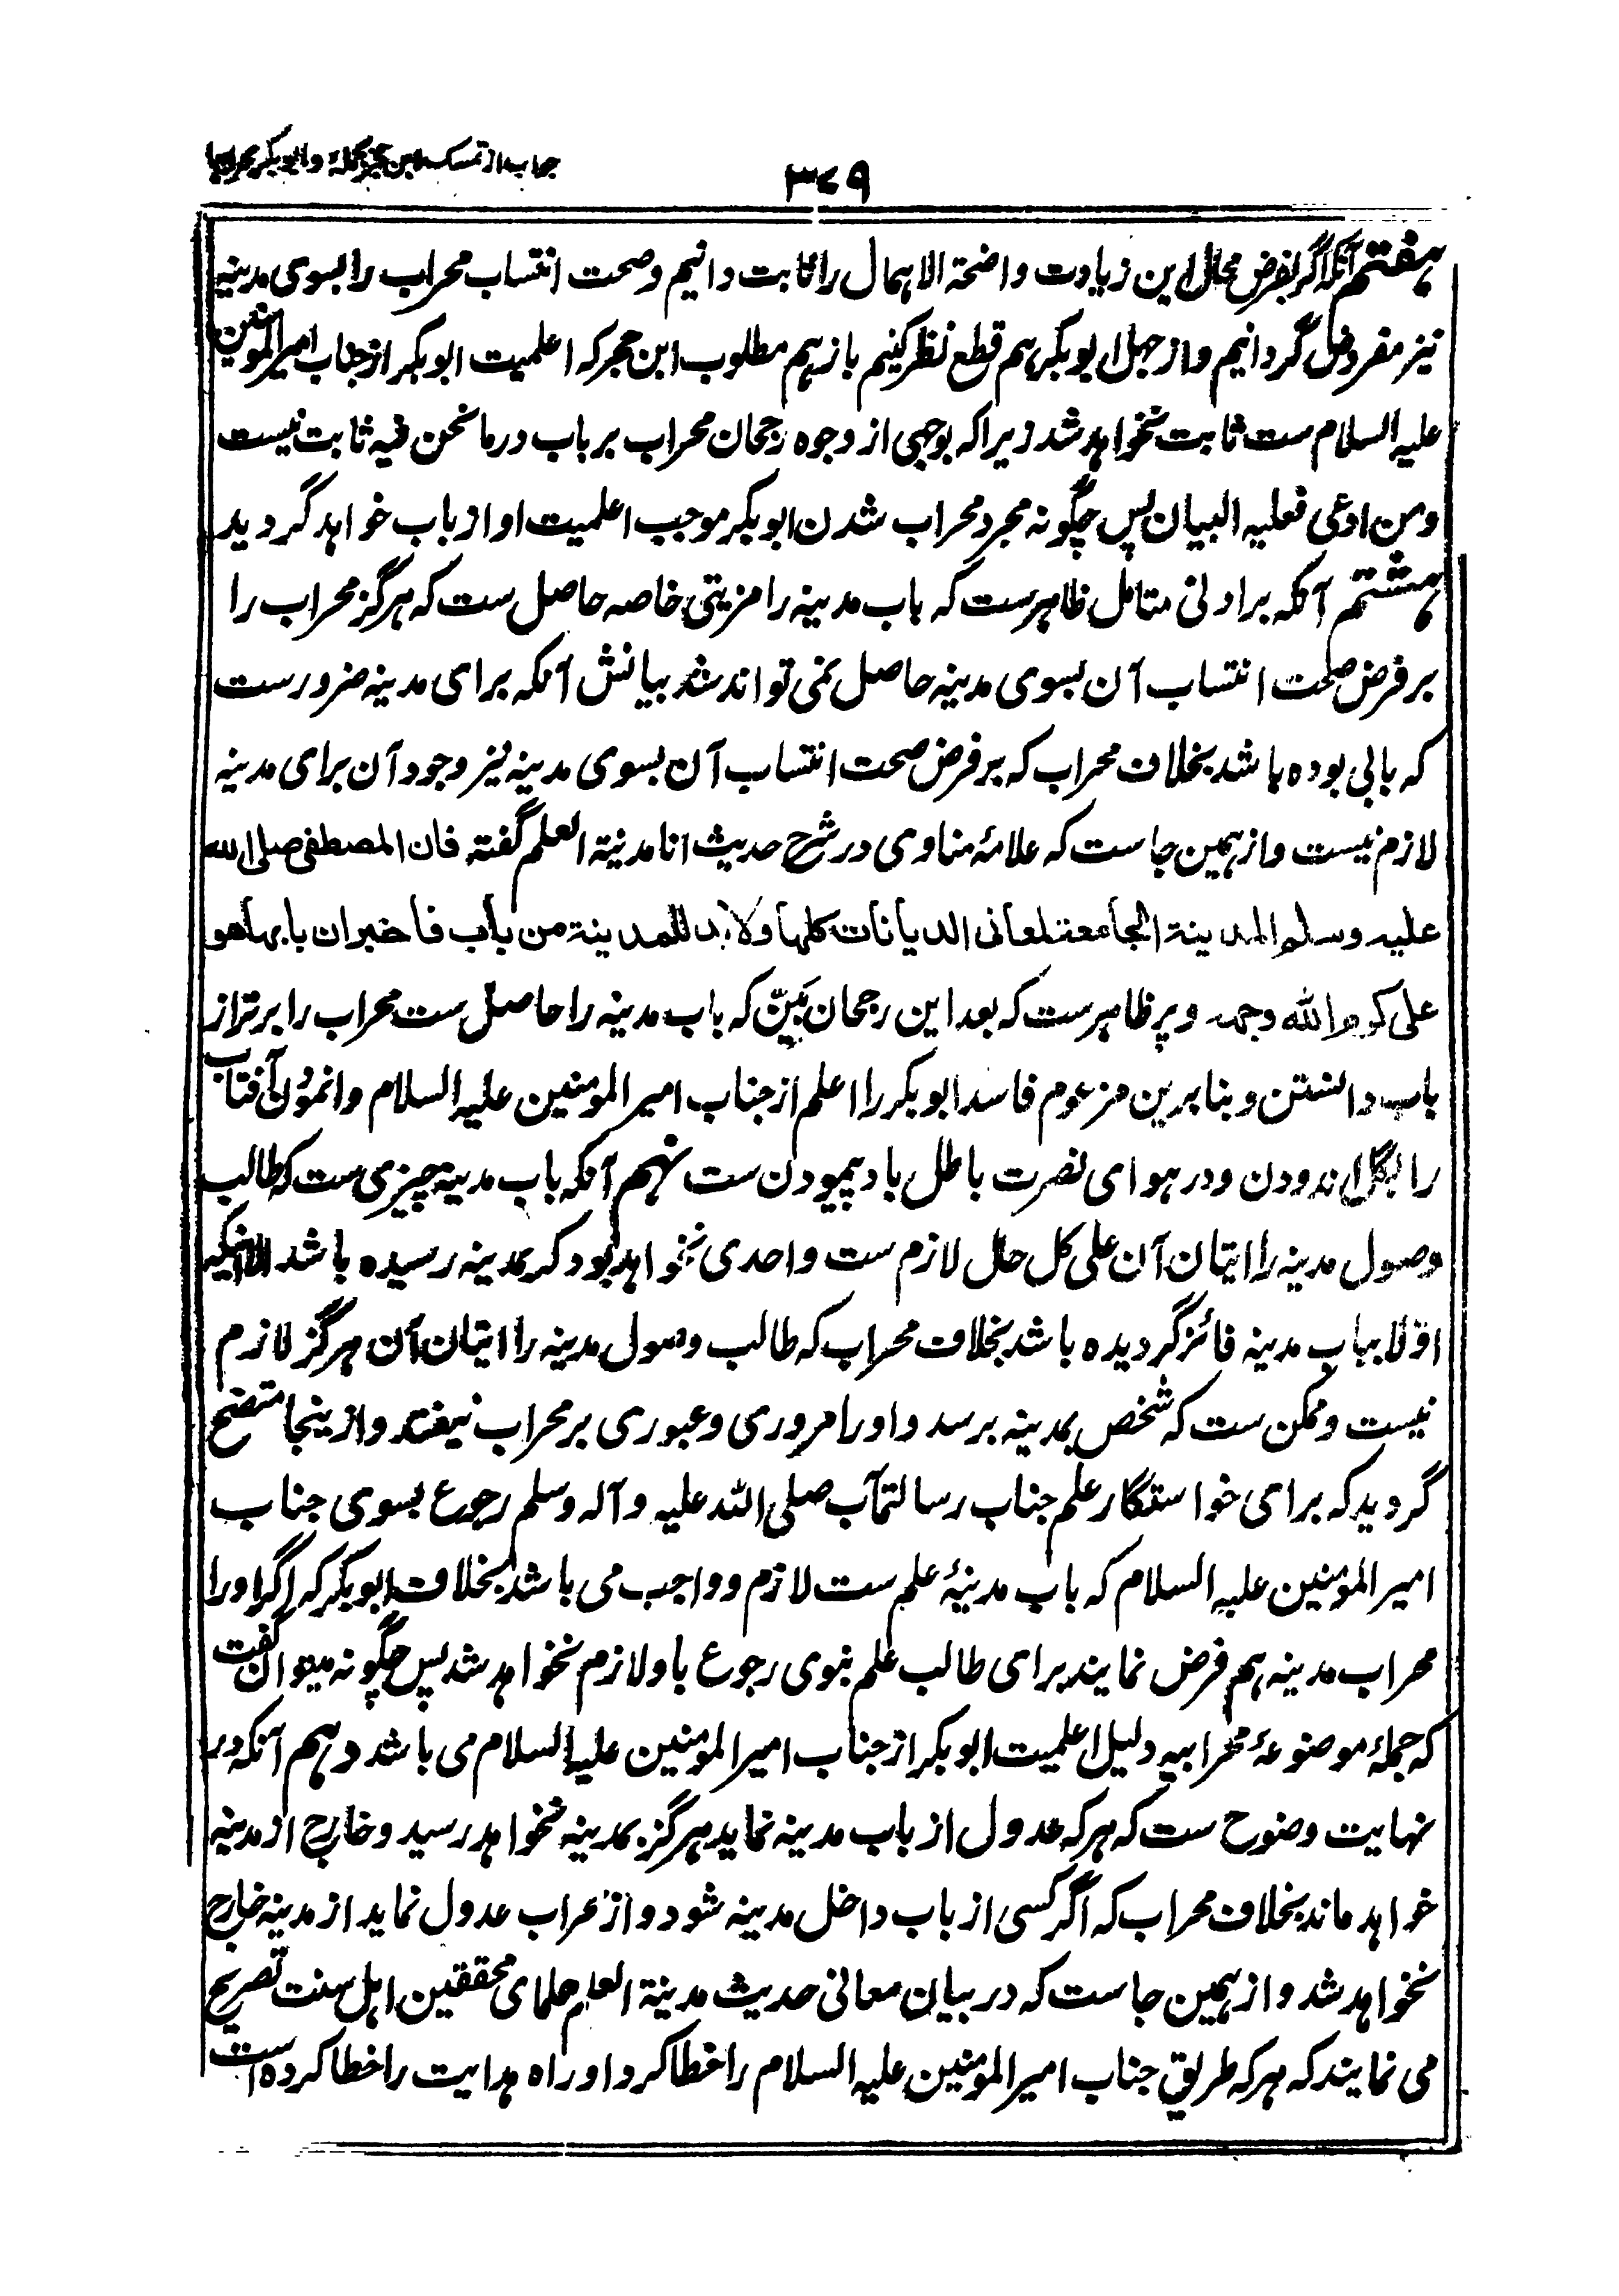 جواب از تمسک ابن حجر بجملۀ وابوبکر محرابها
۳۷۹
هفتم آنکه اگر بفرض محال این زیادت واضحة الاهمال را ثابت دانیم وصحت انتساب محراب را بسوی مدینه
نیز مفروض گردانیم واز جهل ابوبکر هم قطع نظر کنیم باز هم مطلوب ابن حجر که اعلمیت ابوبکر از جناب امیرالمومنین
علیہ السلام ست ثابت نخواهد شد زیرا که بوجهی از وجوه رجحان محراب بر باب در ما نحن فیه ثابت نیست
ومن ادعی فعلیه البیان پس چگونه مجرد محراب شدن ابوبکر موجب اعلمیت او از باب خواهد گردید
هشتم آنکه بر ادنی متامل ظاهرست که باب مدینه را مزیتی خاصه حاصل ست که هرگز محراب را
بر فرض صحت انتساب آن بسوی مدینه حاصل نمی تواند شد بیانش آنکه برای مدینه ضرورست
که بابی بوده باشد بخلاف محراب که بر فرض صحت انتساب آن بسوی مدینه نیز وجود آن برای مدینه
لازم نیست واز همین جاست که علامۀ مناوی در شرح حدیث انا مدینة العلم گفته فان المصطفی صلی الله
علیه وسلم المدینة الجامعة لمعانی الدیانات کلها ولا بد للمدینة من باب فاخبر ان بابها هو
علی کرم الله وجهه وپر ظاهرست که بعد این رجحان بیّن که باب مدینه را حاصل ست محراب را برتر از
باب دانستن وبنا برین مزعوم فاسد ابوبکر را اعلم از جناب امیر المومنین علیہ السلام وانمودن آفتاب
را بگل اندودن ودر هوای نصرت باطل باد پیمودن ست نهم آنکه باب مدینه چیزی ست که طالب
وصول مدینه را اتیان آن علی کل حال لازم ست واحدی نخواهد بود که بمدینه رسیده باشد الا آنکه
اوّلا بباب مدینه فائز گردیده باشد بخلاف محراب که طالب وصول مدینه را اتیان آن هرگز لازم
نیست وممکن ست که شخص بمدینه برسد واورا مروری وعبوری بر محراب نیفتد وازینجا متضح
گردید که برای خواستگار علم جناب رسالتمآب صلی اللہ علیه وآله وسلم رجوع بسوی جناب
امیر المومنین علیہ السلام که باب مدینۀ علم ست لازم وواجب می باشد بخلاف ابوبکر که اگر اورا
محراب مدینه هم فرض نمایند برای طالب علم نبوی رجوع باو لازم نخواهد شد پس چگونه میتوان گفت
که جملۀ موضوعۀ محرابیه دلیل اعلمیت ابوبکر از جناب امیر المومنین علیہ السلام می باشد دهم آنکه در
نهایت وضوح ست که هر که عدول از باب مدینه نماید هرگز بمدینه نخواهد رسید وخارج از مدینه
خواهد ماند بخلاف محراب که اگر کسی از باب داخل مدینه شود واز محراب عدول نماید از مدینه خارج
نخواهد شد واز همین جاست که در بیان معانی حدیث مدینة العلم علمای محققین اهل سنت تصریح
می نمایند که هر که طریق جناب امیر المومنین علیہ السلام را خطا کرد او راه هدایت را خطا کرده است